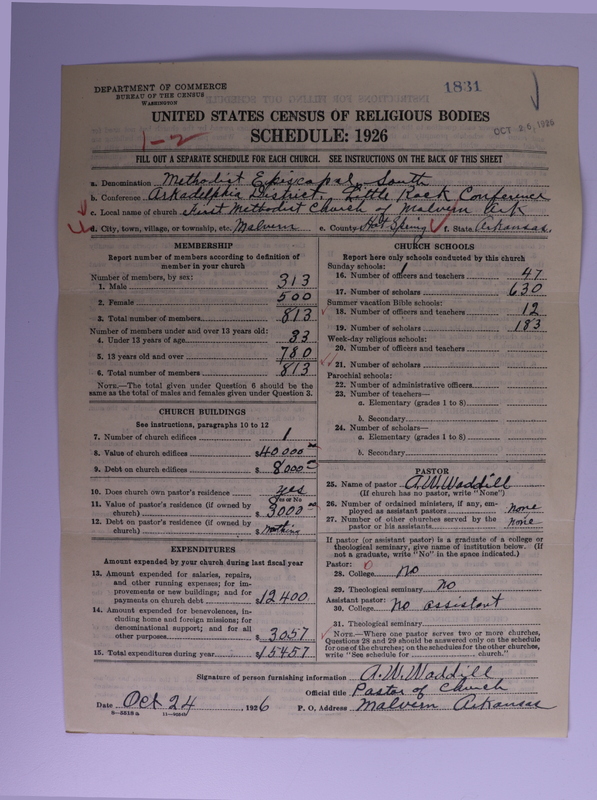 1831
DEPARTMENT OF COMMERCE
BUREAU OF THE CENSUS
WASHINGTON
UNITED STATES CENSUS OF RELIGIOUS BODIES
1-2
SCHEDULE: 1926
OCT 26, 1926
FILL OUT A SEPARATE SCHEDULE FOR EACH CHURCH. SEE INSTRUCTIONS ON THE BACK OF THIS SHEET
a. Denomination Methodist Episcopal South
b. Conference Arkadelphia District, Little Rock Conference
c. Local name of church First Methodist Church of Malvern Ark
d. City, town, village, or township, etc. Malvern e. County Hot Spring f. State Arkansas
MEMBERSHIP
Report number of members according to definition of
member in your church
Number of members, by sex:
1. Male 313
2. Female 500
3. Total number of members 813
Number of members under and over 13 years old:
4. Under 13 years of age 33
5. 13 years old and over 780
6. Total number of members 813
NOTE.—The total given under Question 6 should be the
same as the total of males and females given under Question 3.
CHURCH BUILDINGS
See instructions, paragraphs 10 to 12
7. Number of church edifices 1
8. Value of church edifices $40000
9. Debt on church edifices $8000
10. Does church own pastor's residence yes
Yes or No
11. Value of pastor's residence (if owned by
church) $3000
12. Debt on pastor's residence (if owned by
church) $ Nothing
EXPENDITURES
Amount expended by your church during last fiscal year
13. Amount expended for salaries, repairs,
and other running expenses; for im-
provements or new buildings; and for
payments on church debt $12400
14. Amount expended for benevolences, in-
cluding home and foreign missions; for
denominational support; and for all
other purposes $3057
15. Total expenditures during year $15457
CHURCH SCHOOLS
Report here only schools conducted by this church
Sunday schools:
16. Number of officers and teachers 47
17. Number of scholars 630
Summer vacation Bible schools:
18. Number of officers and teachers 12
19. Number of scholars 183
Week-day religious schools:
20. Number of officers and teachers
21. Number of scholars
Parochial schools:
22. Number of administrative officers
23. Number of teachers—
a. Elementary (grades 1 to 8)
b. Secondary
24. Number of scholars—
a. Elementary (grades 1 to 8)
b. Secondary
PASTOR
25. Name of pastor A. W. Waddill
(If church has no pastor, write "None")
26. Number of ordained ministers, if any, em-
ployed as assistant pastors none
27. Number of other churches served by the
pastor or his assistants none
If pastor (or assistant pastor) is a graduate of a college or
theological seminary, give name of institution below. (If
not a graduate, write "No" in the space indicated.)
Pastor: 0
28. College no
29. Theological seminary No
Assistant pastor:
30. College No assistant
31. Theological seminary
NOTE.—Where one pastor serves two or more churches,
Questions 28 and 29 should be answered only on the schedule
for one of the churches; on the schedules for the other churches,
write "See schedule for church."
Signature of person furnishing information A. W. Waddill
Official title Pastor of Church
Date Oct 24, 1926 P. O. Address Malvern Arkansas